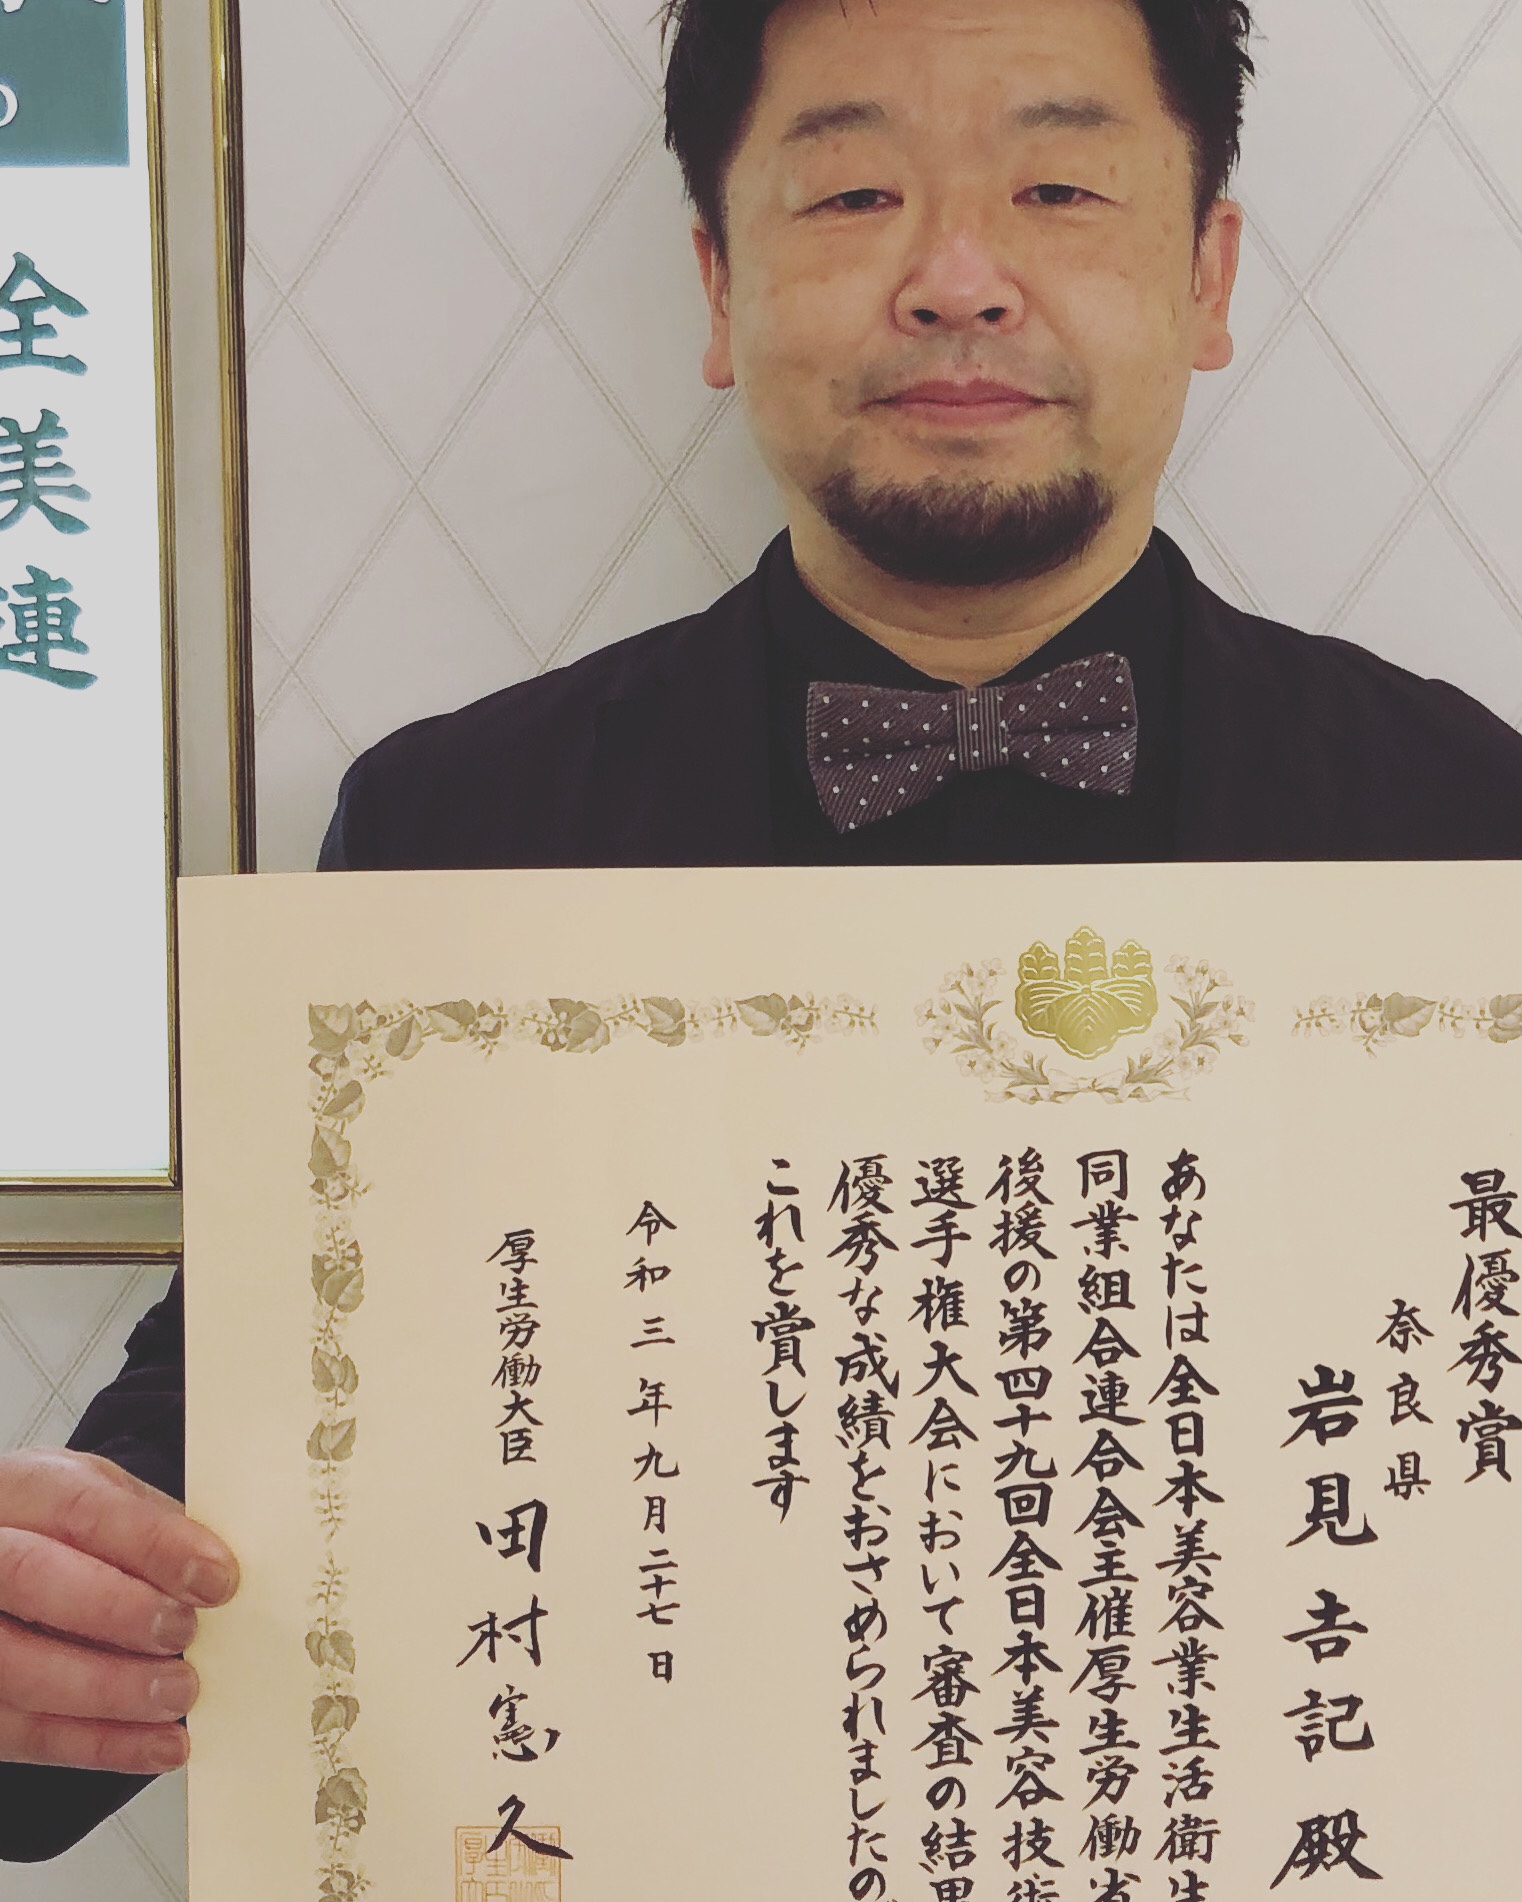 全美連
最優秀賞
奈良県
岩見𠮷記殿
あなたは全日本美容業生活衛生
同業組合連合会主催厚生労働省
後援の第四十九回全日本美容技術
選手権大会において審査の結果
優秀な成績をおさめられましたので
これを賞します
令和三年九月二十七日
厚生労働大臣 田村憲久